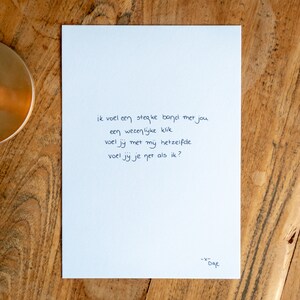 ik voel een sterke band met jou
een wezenlijke klik
voel jij met mij hetzelfde
voel jij je net als ik?